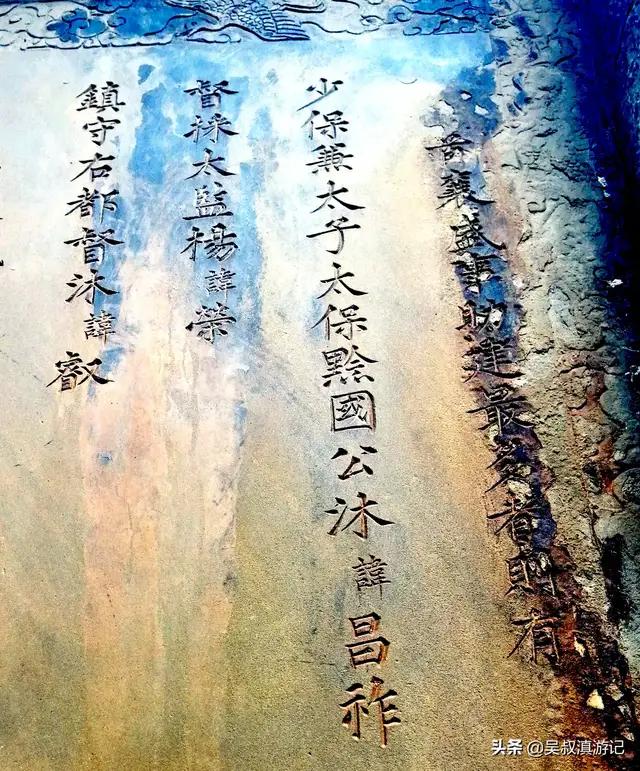 襄盛事助建最多者則有
少保兼太子太保黔國公沐諱昌祚
督採太監楊諱榮
鎮守右都督沐諱叡
头条 @吴叔滇游记